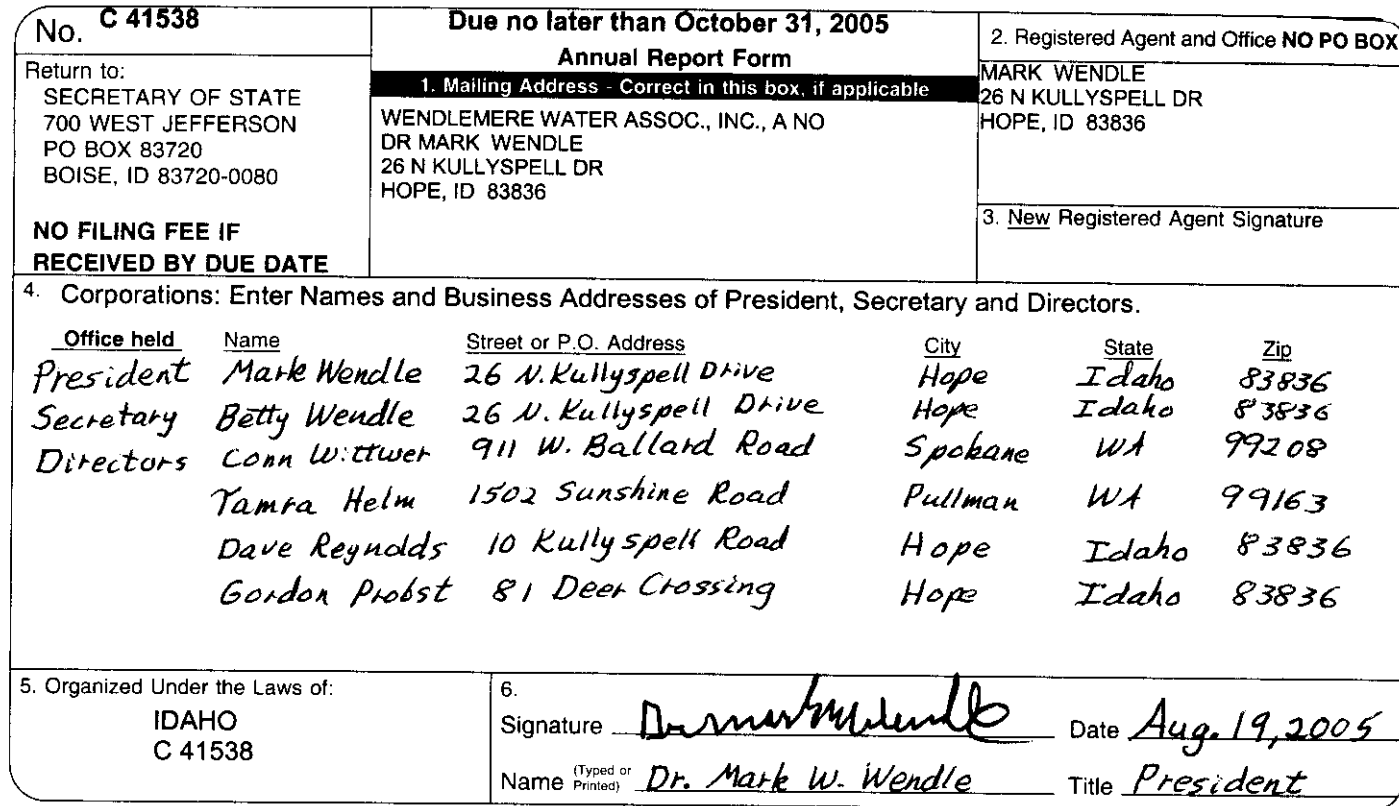 No. C 41538
Return to:
SECRETARY OF STATE
700 WEST JEFFERSON
PO BOX 83720
BOISE, ID 83720-0080
NO FILING FEE IF
RECEIVED BY DUE DATE
Due no later than October 31, 2005
Annual Report Form
1. Mailing Address - Correct in this box, if applicable
WENDLEMERE WATER ASSOC., INC., A NO
DR MARK WENDLE
26 N KULLYSPELL DR
HOPE, ID 83836
2. Registered Agent and Office NO PO BOX
MARK WENDLE
26 N KULLYSPELL DR
HOPE, ID 83836
3. New Registered Agent Signature
4. Corporations: Enter Names and Business Addresses of President, Secretary and Directors.
Office held Name Street or P.O. Address City State Zip
President Mark Wendle 26 N. Kullyspell Drive Hope Idaho 83836
Secretary Betty Wendle 26 N. Kullyspell Drive Hope Idaho 83836
Directors Conn Wittwer 911 W. Ballard Road Spokane WA 99208
Tamra Helm 1502 Sunshine Road Pullman WA 99163
Dave Reynolds 10 Kullyspell Road Hope Idaho 83836
Gordon Probst 81 Deer Crossing Hope Idaho 83836
5. Organized Under the Laws of:
IDAHO
C 41538
6.
Signature Dr Mark W Wendle Date Aug. 19, 2005
Name (Typed or Printed) Dr. Mark W. Wendle Title President